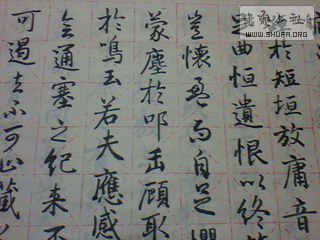 於短垣放庸音
足曲恒遺恨以終
豈懷盈而自足懼
蒙塵於叩缶顧取
於鳴玉若夫應感
會通塞之紀来不
可遏去不可止藏
公社